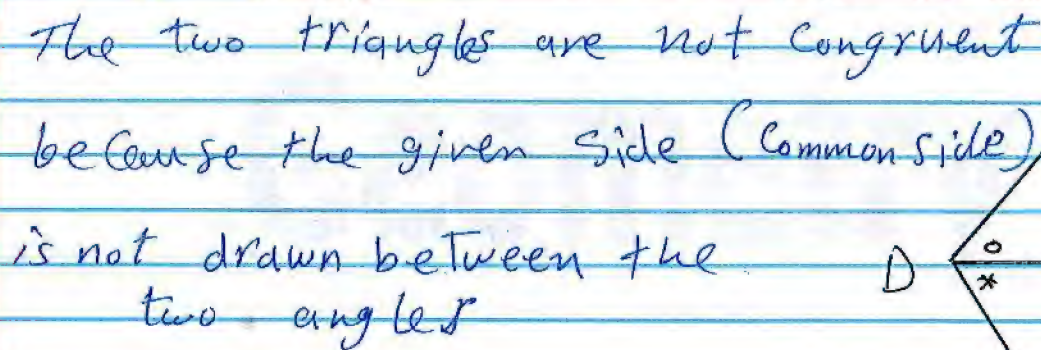 The two triangles are not Congruent
because the given Side (Common side)
is not drawn between the
two angles
D
o
*